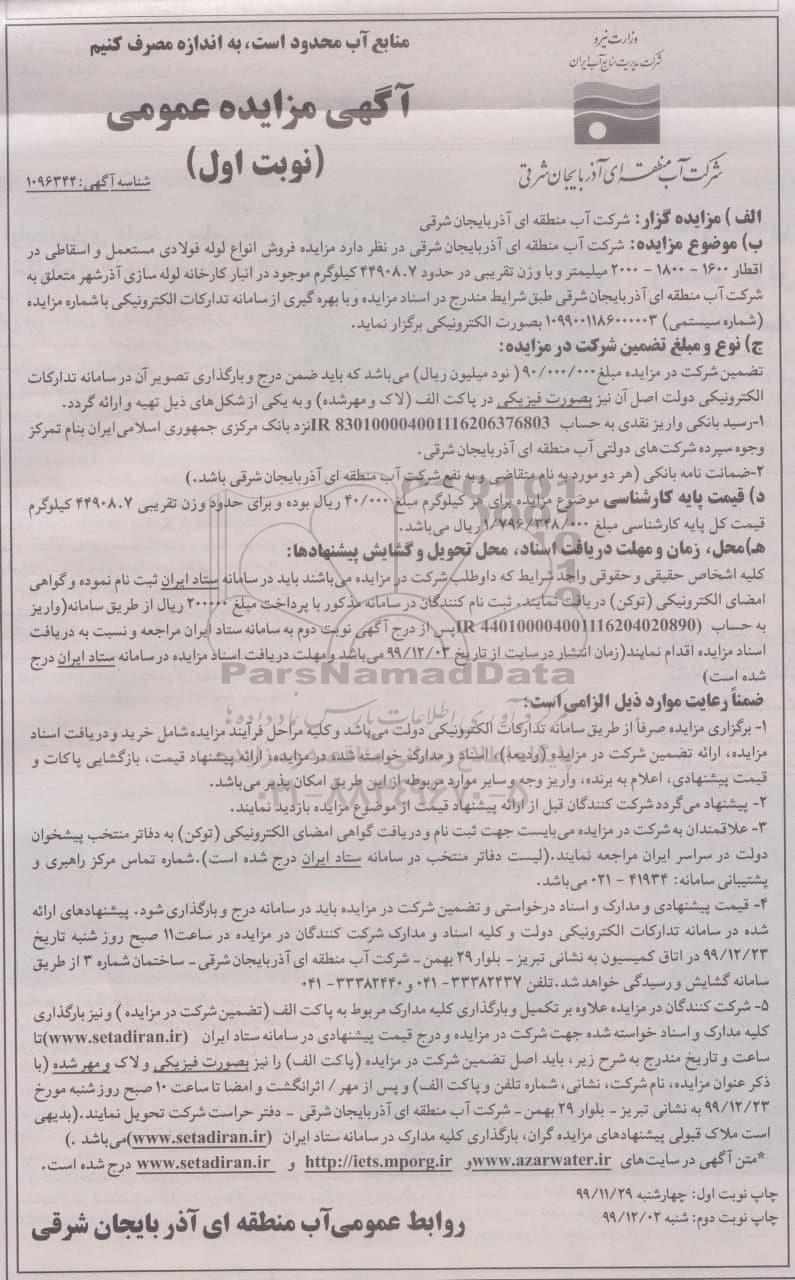 منابع آب محدود است، به اندازه مصرف کنیم
وزارت نیرو
شرکت مدیریت منابع آب ایران
آگهی مزایده عمومی
(نوبت اول)
شناسه آگهی: ۱۰۹۶۳۴۴
شرکت آب منطقه ای آذربایجان شرقی
الف ) مزایده گزار: شرکت آب منطقه ای آذربایجان شرقی
ب) موضوع مزایده: شرکت آب منطقه ای آذربایجان شرقی در نظر دارد مزایده فروش انواع لوله فولادی مستعمل و اسقاطی در
اقطار ۱۶۰۰ - ۱۸۰۰ - ۲۰۰۰ میلیمتر و با وزن تقریبی در حدود ۴۴۹۰۸.۷ کیلوگرم موجود در انبار کارخانه لوله سازی آذرشهر متعلق به
شرکت آب منطقه ای آذربایجان شرقی طبق شرایط مندرج در اسناد مزایده و با بهره گیری از سامانه تدارکات الکترونیکی با شماره مزایده
(شماره سیستمی) ۱۰۹۹۰۰۱۱۸۶۰۰۰۰۰۳ بصورت الکترونیکی برگزار نماید.
ج) نوع و مبلغ تضمین شرکت در مزایده:
تضمین شرکت در مزایده مبلغ ۹۰/۰۰۰/۰۰۰ ( نود میلیون ریال) می‌باشد که باید ضمن درج و بارگذاری تصویر آن در سامانه تدارکات
الکترونیکی دولت اصل آن نیز بصورت فیزیکی در پاکت الف (لاک و مهرشده) و به یکی از شکل‌های ذیل تهیه و ارائه گردد.
۱-رسید بانکی واریز نقدی به حساب IR 830100004001116206376803 نزد بانک مرکزی جمهوری اسلامی ایران بنام تمرکز
وجوه سپرده شرکت‌های دولتی آب منطقه ای آذربایجان شرقی.
۲-ضمانت نامه بانکی (هر دو مورد به نام متقاضی و به نفع شرکت آب منطقه ای آذربایجان شرقی باشد.)
د) قیمت پایه کارشناسی موضوع مزایده برای هر کیلوگرم مبلغ ۴۰/۰۰۰ ریال بوده و برای حدود وزن تقریبی ۴۴۹۰۸.۷ کیلوگرم
قیمت کل پایه کارشناسی مبلغ ۱/۷۹۶/۳۴۸/۰۰۰ ریال می‌باشد.
هـ)محل، زمان و مهلت دریافت اسناد، محل تحویل و گشایش پیشنهادها:
کلیه اشخاص حقیقی و حقوقی واجد شرایط که داوطلب شرکت در مزایده می‌باشند باید در سامانه ستاد ایران ثبت نام نموده و گواهی
امضای الکترونیکی (توکن) دریافت نمایند. ثبت نام کنندگان در سامانه مذکور با پرداخت مبلغ ۲۰۰۰۰۰ ریال از طریق سامانه(واریز
به حساب IR 440100004001116204020890) پس از درج آگهی نوبت دوم به سامانه ستاد ایران مراجعه و نسبت به دریافت
اسناد مزایده اقدام نمایند(زمان انتشار در سایت از تاریخ ۹۹/۱۲/۰۳ می‌باشد و مهلت دریافت اسناد مزایده در سامانه ستاد ایران درج
شده است)
ParsNamadData
ضمناً رعایت موارد ذیل الزامی است:
۱- برگزاری مزایده صرفاً از طریق سامانه تدارکات الکترونیکی دولت می‌باشد و کلیه مراحل فرآیند مزایده شامل خرید و دریافت اسناد
مزایده، ارائه تضمین شرکت در مزایده (ودیعه)، اسناد و مدارک خواسته شده در مزایده، ارائه پیشنهاد قیمت، بازگشایی پاکات و
قیمت پیشنهادی، اعلام به برنده، واریز وجه و سایر موارد مربوطه از این طریق امکان پذیر می‌باشد.
۰۲۱-۸۸۳۴۹۶۷۰-۵
۲- پیشنهاد می‌گردد شرکت کنندگان قبل از ارائه پیشنهاد قیمت از موضوع مزایده بازدید نمایند.
۳- علاقمندان به شرکت در مزایده می‌بایست جهت ثبت نام و دریافت گواهی امضای الکترونیکی (توکن) به دفاتر منتخب پیشخوان
دولت در سراسر ایران مراجعه نمایند.(لیست دفاتر منتخب در سامانه ستاد ایران درج شده است).شماره تماس مرکز راهبری و
پشتیبانی سامانه: ۴۱۹۳۴ - ۰۲۱ می‌باشد.
۴- قیمت پیشنهادی و مدارک و اسناد درخواستی و تضمین شرکت در مزایده باید در سامانه درج و بارگذاری شود. پیشنهادهای ارائه
شده در سامانه تدارکات الکترونیکی دولت و کلیه اسناد و مدارک شرکت کنندگان در مزایده در ساعت۱۱ صبح روز شنبه تاریخ
۹۹/۱۲/۲۳ در اتاق کمیسیون به نشانی تبریز - بلوار ۲۹ بهمن - شرکت آب منطقه ای آذربایجان شرقی - ساختمان شماره ۳ از طریق
سامانه گشایش و رسیدگی خواهد شد.تلفن ۳۳۳۸۲۴۳۷- ۰۴۱ و ۳۳۳۸۲۴۴۰- ۰۴۱
۵- شرکت کنندگان در مزایده علاوه بر تکمیل و بارگذاری کلیه مدارک مربوط به پاکت الف (تضمین شرکت در مزایده ) و نیز بارگذاری
کلیه مدارک و اسناد خواسته شده جهت شرکت در مزایده و درج قیمت پیشنهادی در سامانه ستاد ایران (www.setadiran.ir)تا
ساعت و تاریخ مندرج به شرح زیر، باید اصل تضمین شرکت در مزایده (پاکت الف) را نیز بصورت فیزیکی و لاک و مهر شده (با
ذکر عنوان مزایده، نام شرکت، نشانی، شماره تلفن و پاکت الف) و پس از مهر / اثرانگشت و امضا تا ساعت ۱۰ صبح روز شنبه مورخ
۹۹/۱۲/۲۳ به نشانی تبریز - بلوار ۲۹ بهمن - شرکت آب منطقه ای آذربایجان شرقی - دفتر حراست شرکت تحویل نمایند.(بدیهی
است ملاک قبولی پیشنهادهای مزایده گران، بارگذاری کلیه مدارک در سامانه ستاد ایران (www.setadiran.ir)می‌باشد .)
*متن آگهی در سایت‌های www.azarwater.irو http://iets.mporg.ir و www.setadiran.ir درج شده است.
چاپ نوبت اول: چهارشنبه ۹۹/۱۱/۲۹
چاپ نوبت دوم: شنبه ۹۹/۱۲/۰۲
روابط عمومی آب منطقه ای آذربایجان شرقی